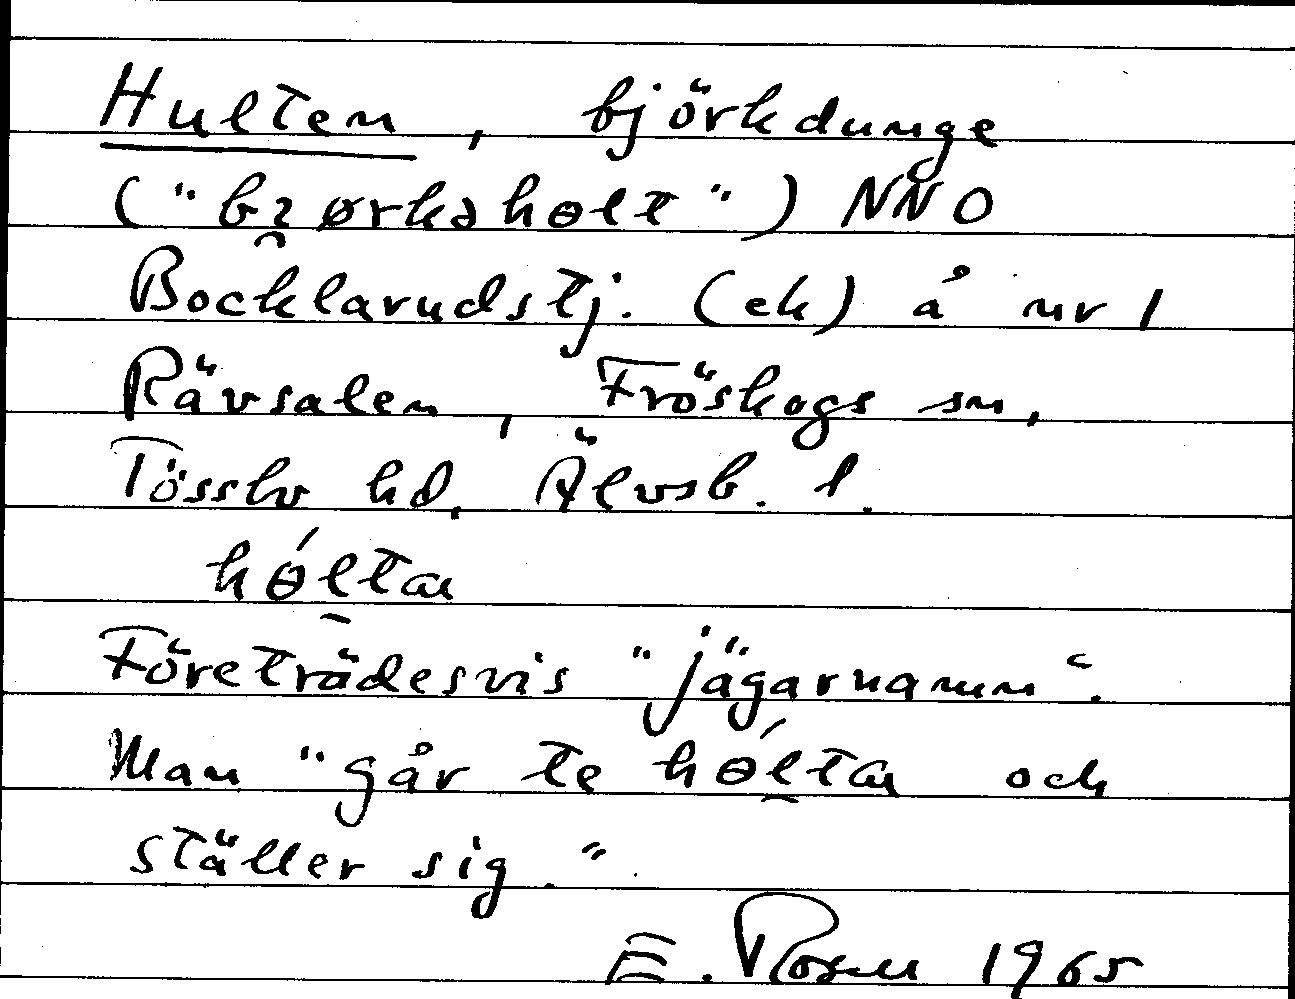 Hulten, björkdunge
("bɿørkəhɵlt") NNO
Bocklarudstj. (ek) å nr 1
Rävsalen, Fröskogs sn,
Tössbo hd, Älvsb. l.
hɵ́ltan
Företrädesvis "jägarnamn".
Man "går te hɵ́ltan och
ställer sig."
E. Rosell 1965